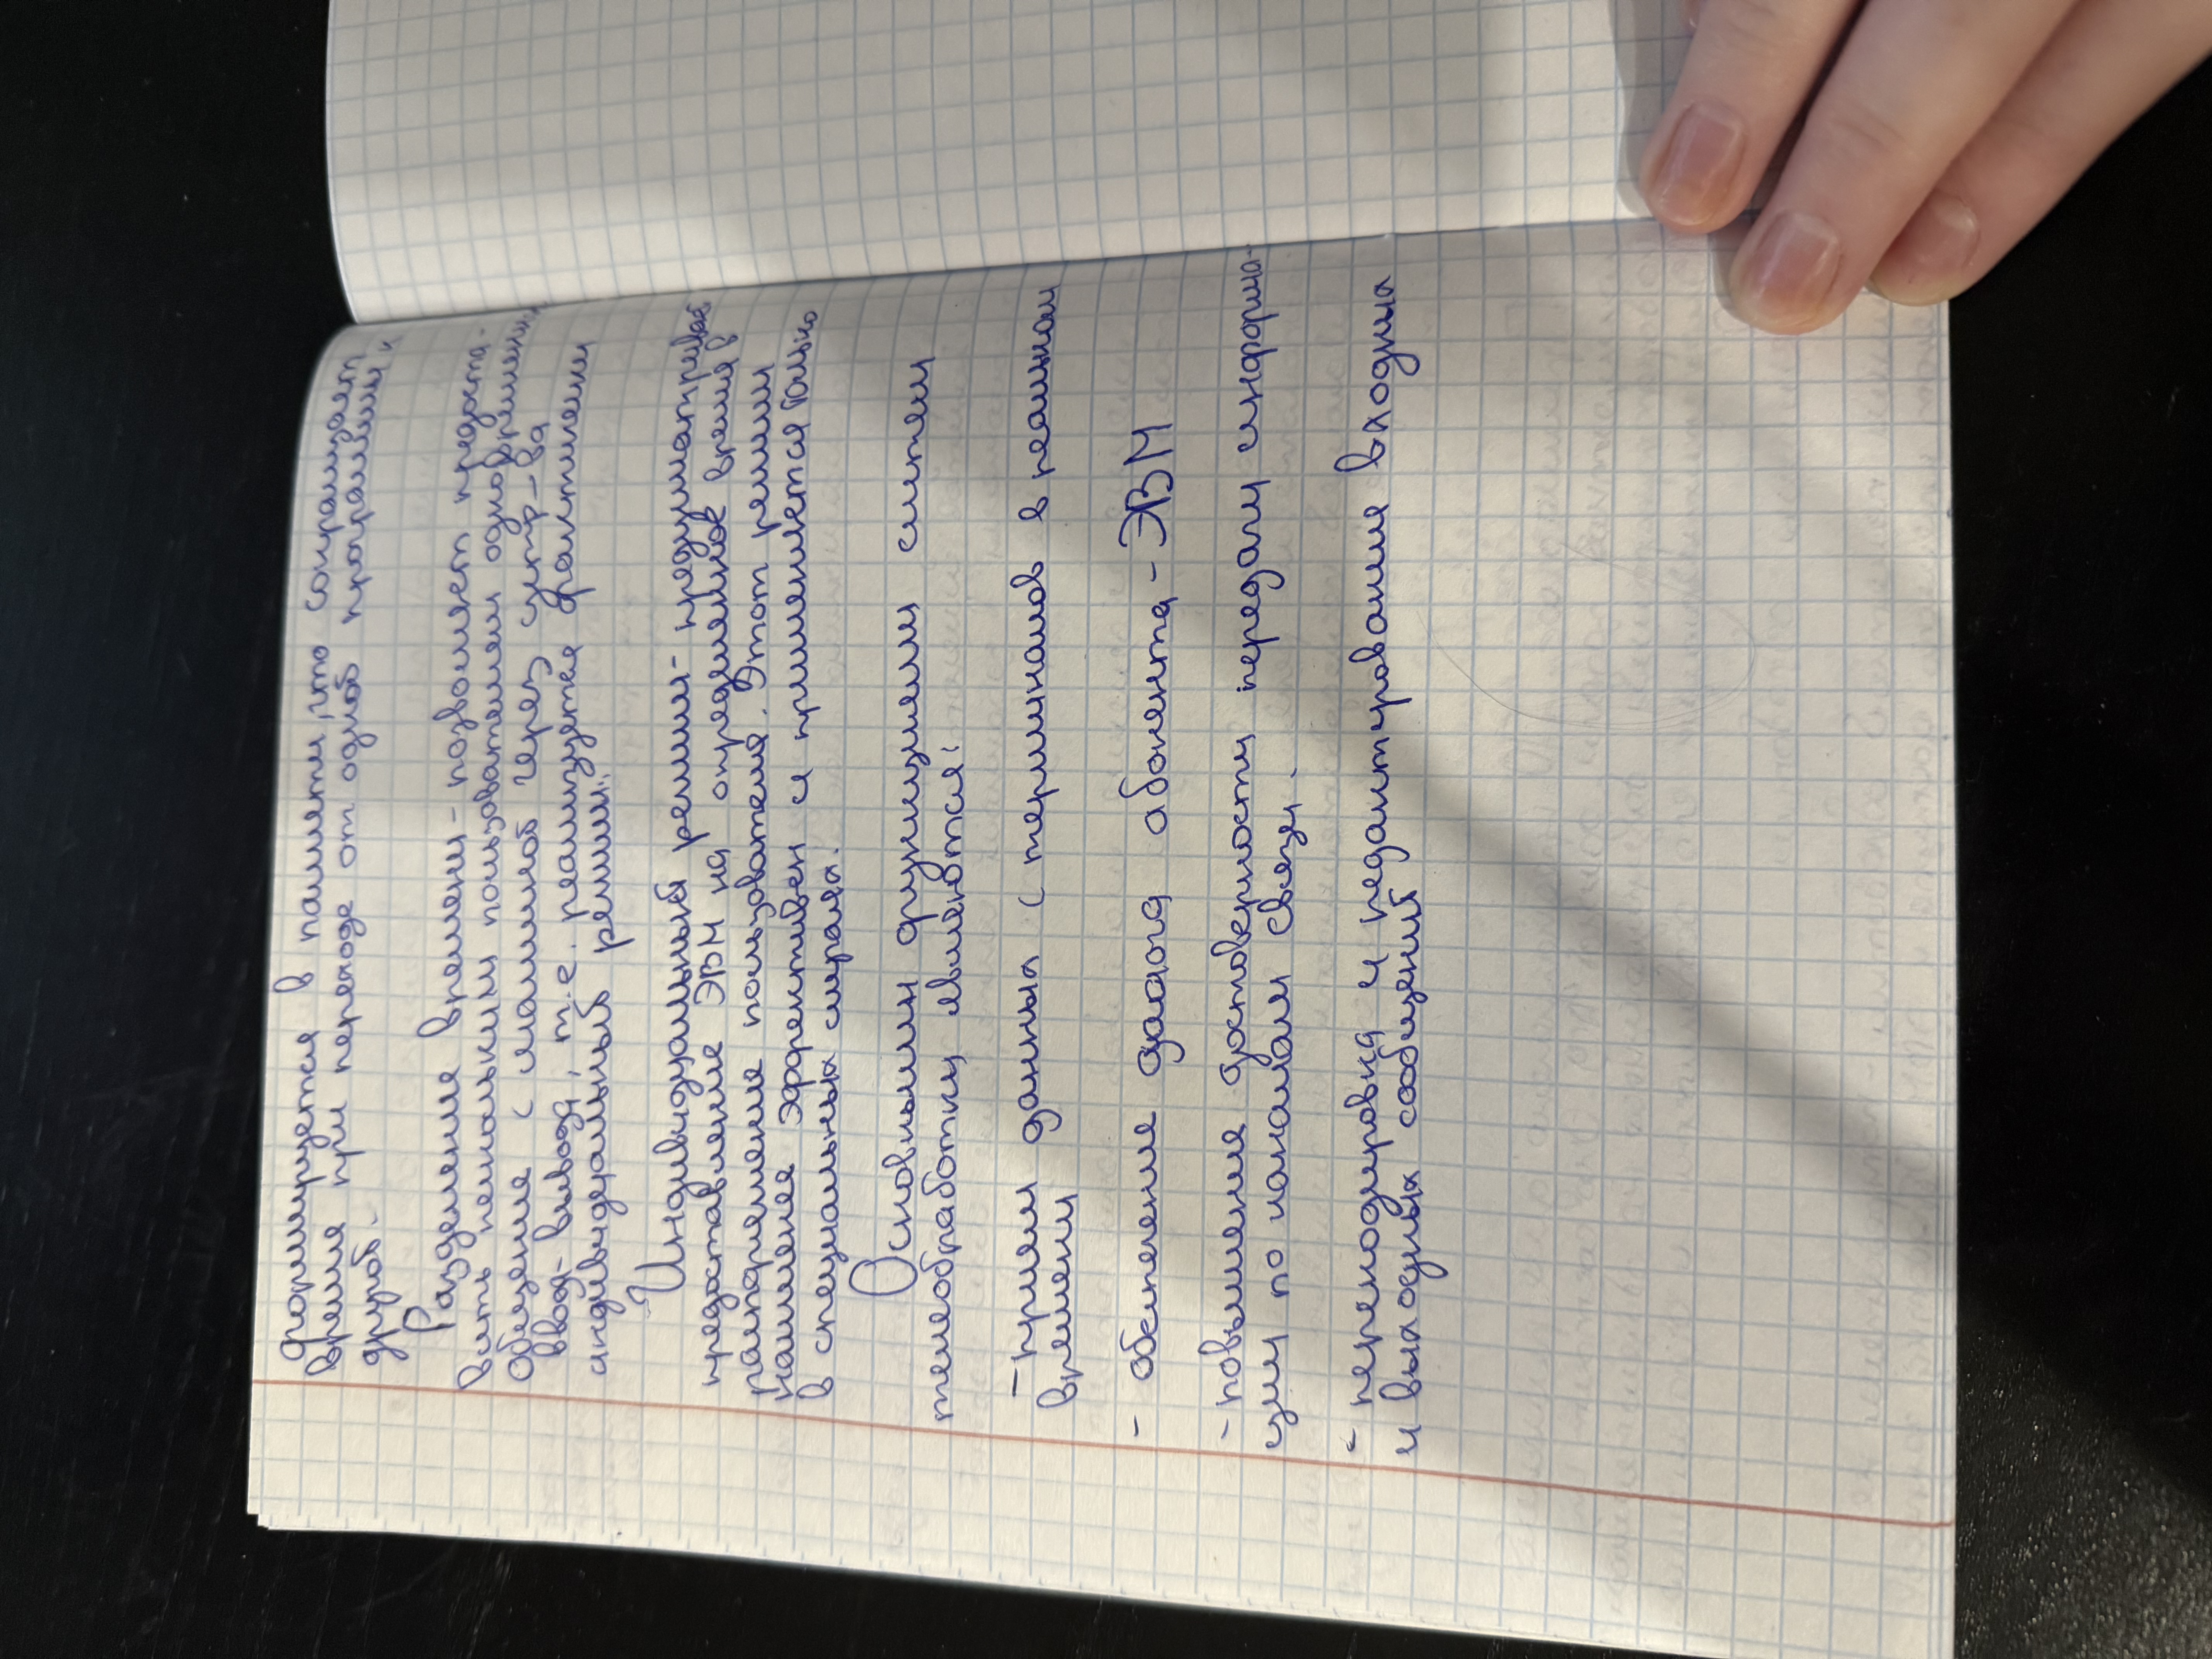 формируется в памяти, что сокращает
время при переходе от одной программы к
другой.
Разделение времени - позволяет предоста-
вить нескольким пользователям одновременно
общение с машиной через устр-ва
ввод-вывода, т.е. реализуется фактически
индивидуальный режим.
Индивидуальный режим - предусматривает
предоставление ЭВМ на определённое время в
распоряжение пользователя. Этот режим
наименее эффективен и применяется только
в специальных случаях.
Основными функциями систем
телеобработки являются:
- приём данных с терминалов в реальном
времени
- обеспечение диалога абонента - ЭВМ
- повышение достоверности передачи информа-
ции по каналам связи.
- перекодировка и редактирование входных
и выходных сообщений